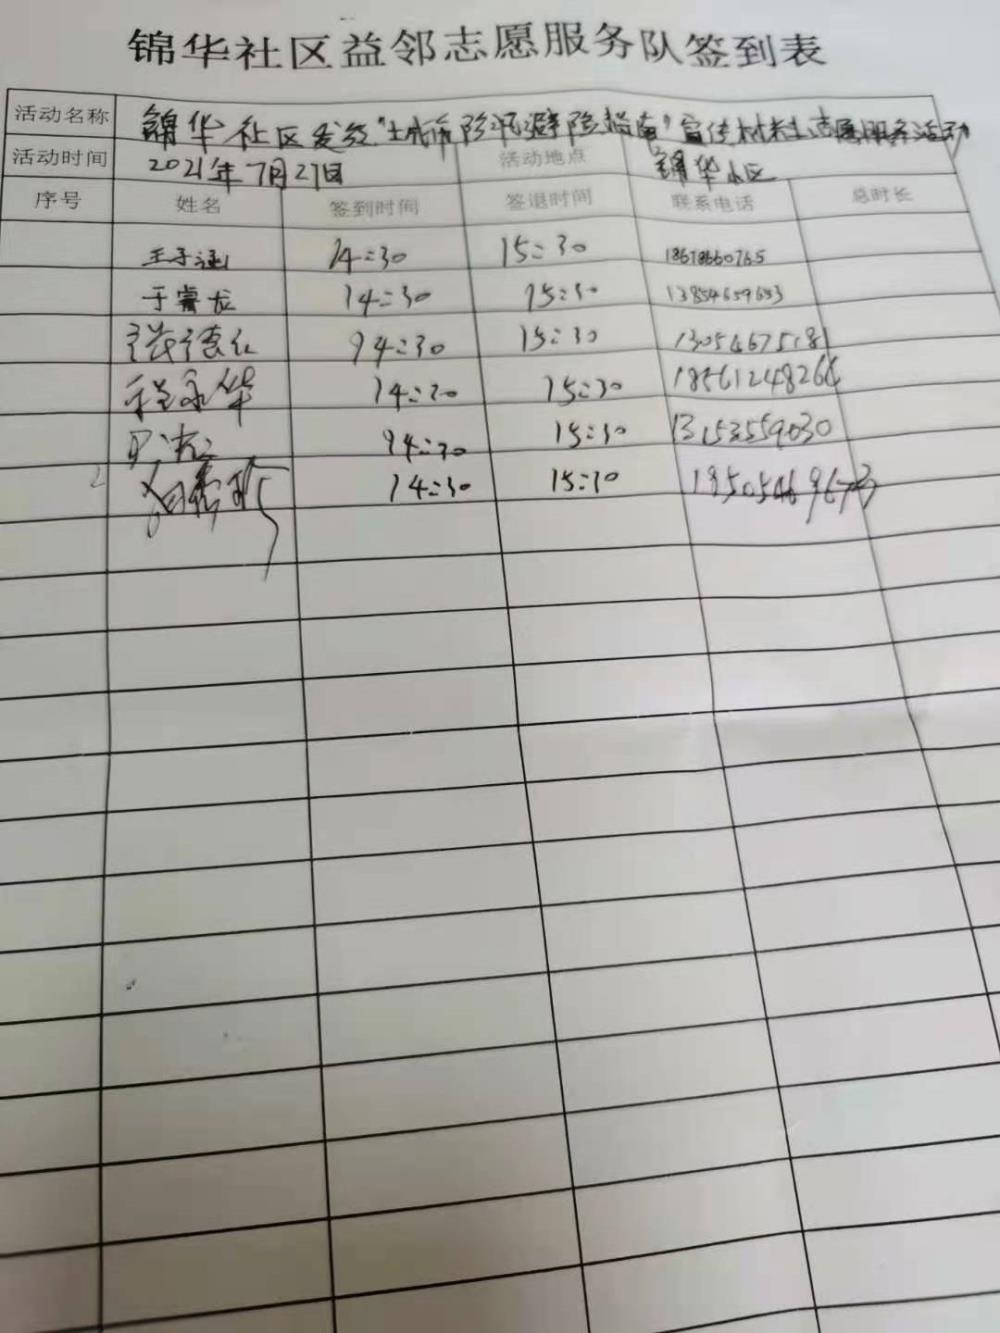 锦华社区益邻志愿服务队签到表
活动名称 锦华社区发放"城市防汛避险指南"宣传材料志愿服务活动
活动时间 2021年7月27日 活动地点 锦华社区
序号 姓名 签到时间 签退时间 联系电话 总时长
王子涵 14:30 15:30 18678660765
于睿龙 14:30 15:30 13854659653
14:30 15:30
程永华 14:20 15:30 18561248266
14:30 15:30 13153559030
14:30 15:30